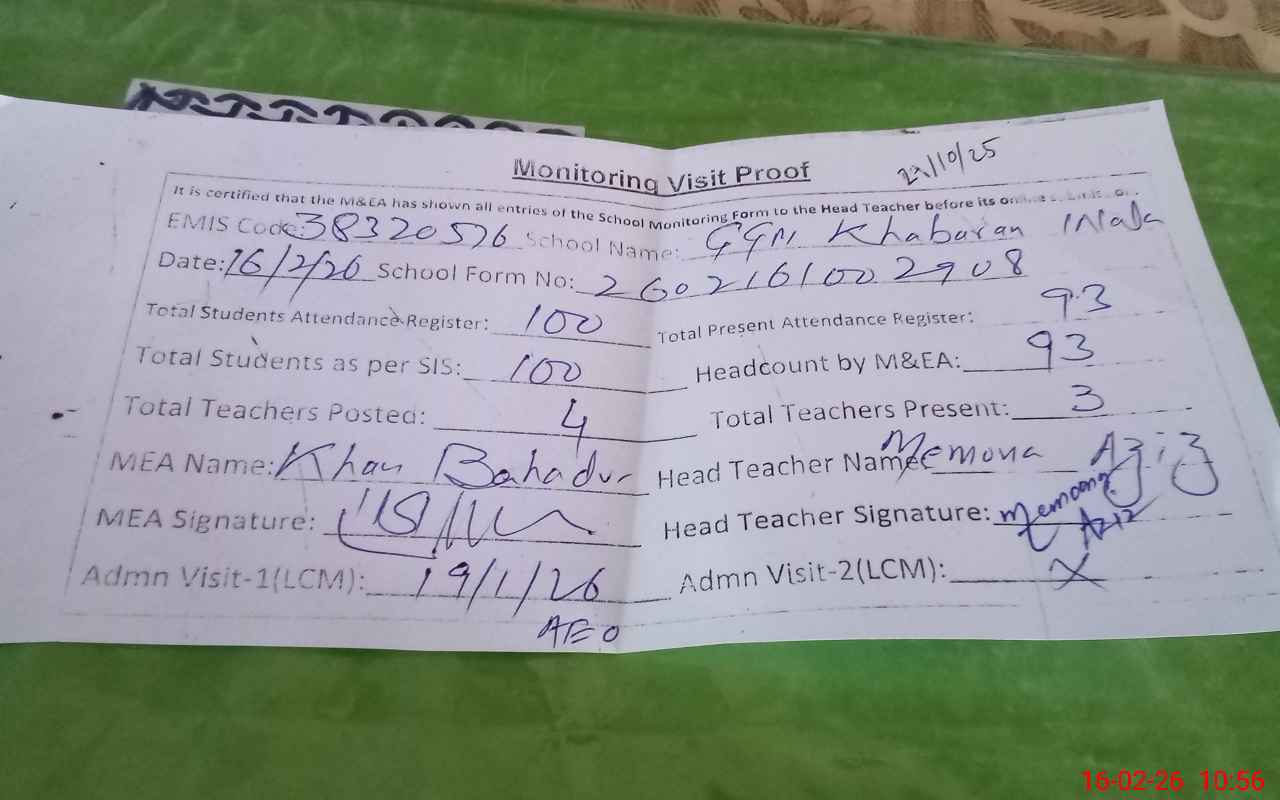 Monitoring Visit Proof
22/10/25
It is certified that the M&EA has shown all entries of the School Monitoring Form to the Head Teacher before its
EMIS Code: 38320576 School Name: GGM Khabaran Wala
Date: 16/2/26 School Form No: 2602161002908
Total Students Attendance Register: 100 Total Present Attendance Register: 93
Total Students as per SIS: 100 Headcount by M&EA: 93
Total Teachers Posted: 4 Total Teachers Present: 3
MEA Name: Khan Bahadur Head Teacher Name: Memona Aziz
MEA Signature: Head Teacher Signature: Memoona Aziz
Admn Visit-1(LCM): 19/1/26 Admn Visit-2(LCM): X
AEO
16-02-26 10:56